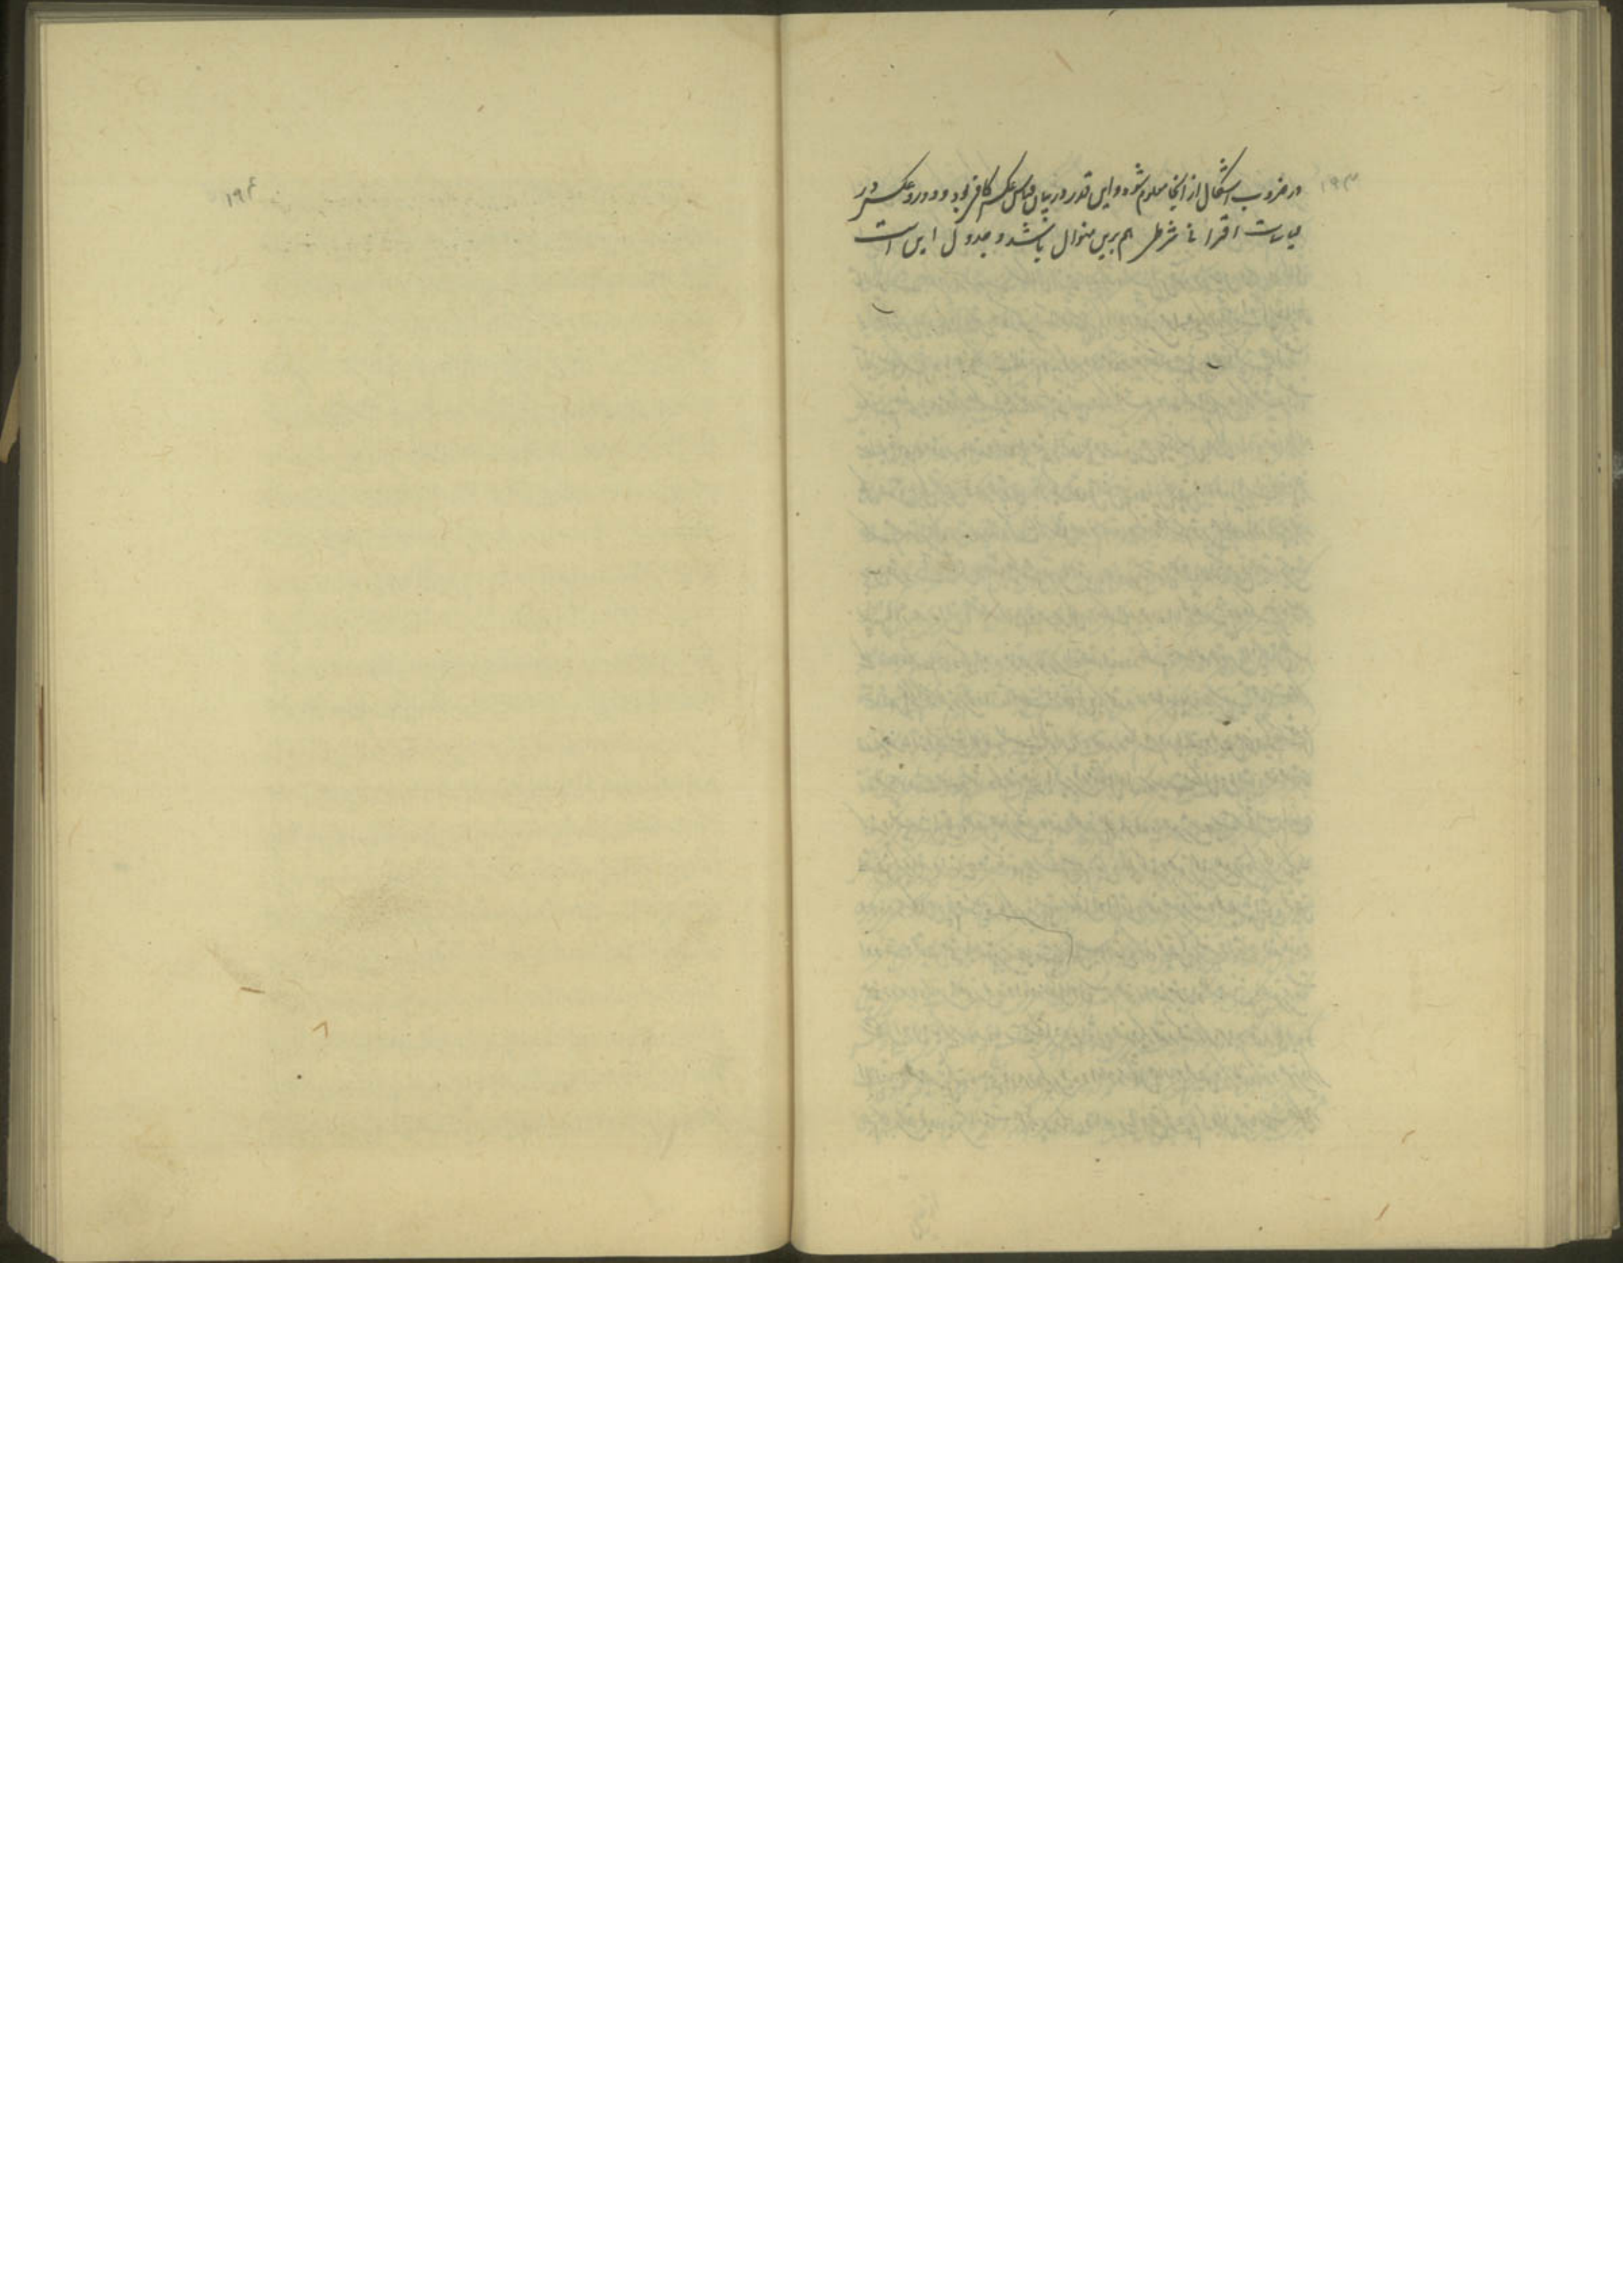 ۱۹۳
در ضروب اشکال از اینجا معلوم شود و این قدر در بیان قیاس عکس کافی بود و دور و عکس در
قیاسات اقترانی شرطی هم برین منوال باشد و جدول این است
۱۹۴